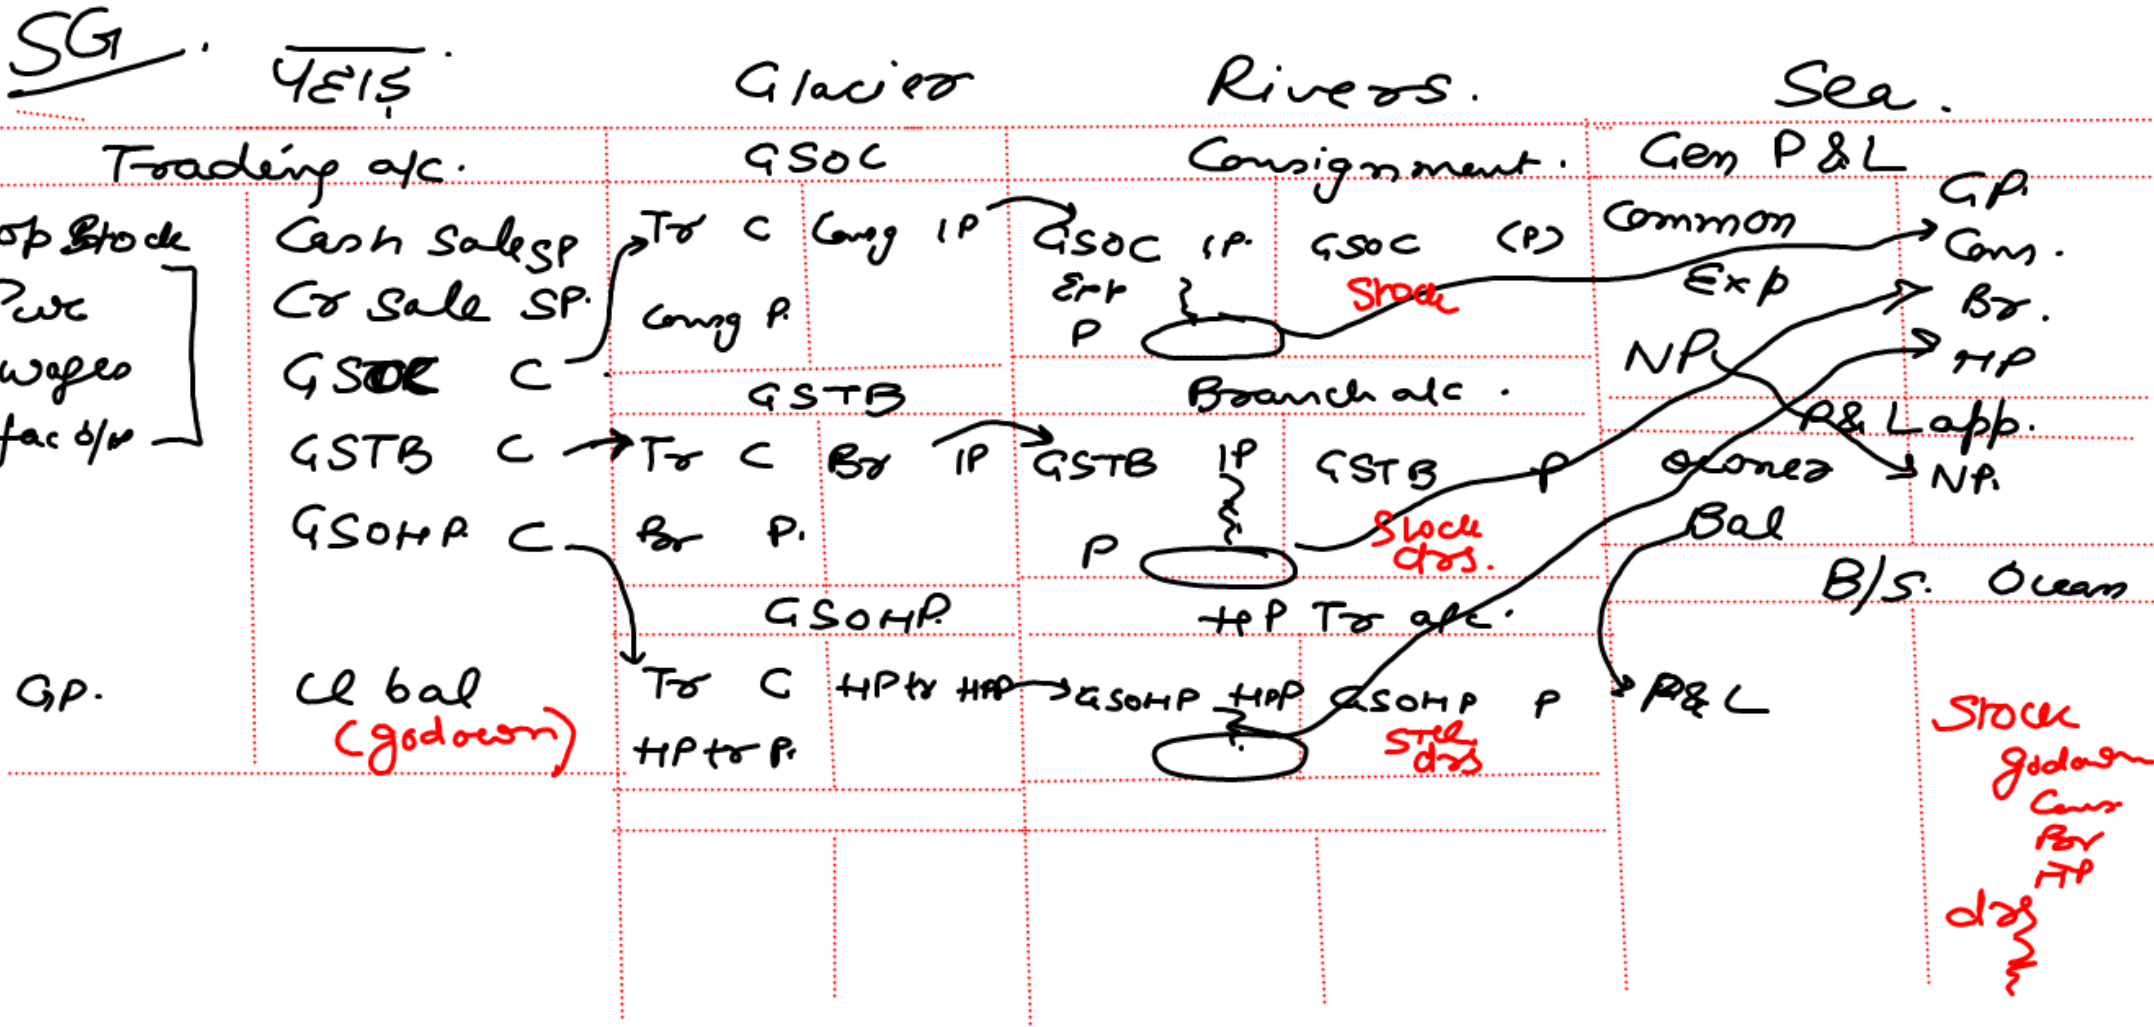 SG.
Glacier
Rivers.
Sea.
Trading a/c.
op Stock
wages
GP.
Cash Sale SP
Cr Sale SP.
GSOC C
GSTB C
GSOHP. C
Cl bal
(godown)
GSOC
Tr C
Consg IP
Consg P.
GSTB
Tr C
Br IP
Br P.
GSOHP.
Tr C
HP tr HPP
HP tr P.
Consignment.
GSOC IP.
Exp
P
GSOC (P)
Stock
Branch a/c.
GSTB IP
P
GSTB P
Stock
drs.
HP Tr a/c.
GSOHP HPP
GSOHP P
drs
Gen P&L
Common
Exp
NP.
GP.
Cons.
Br.
HP
P&L app.
Bal
NP.
B/S. Ocean
P&L
Stock
godown
Cons
Br
HP
drs